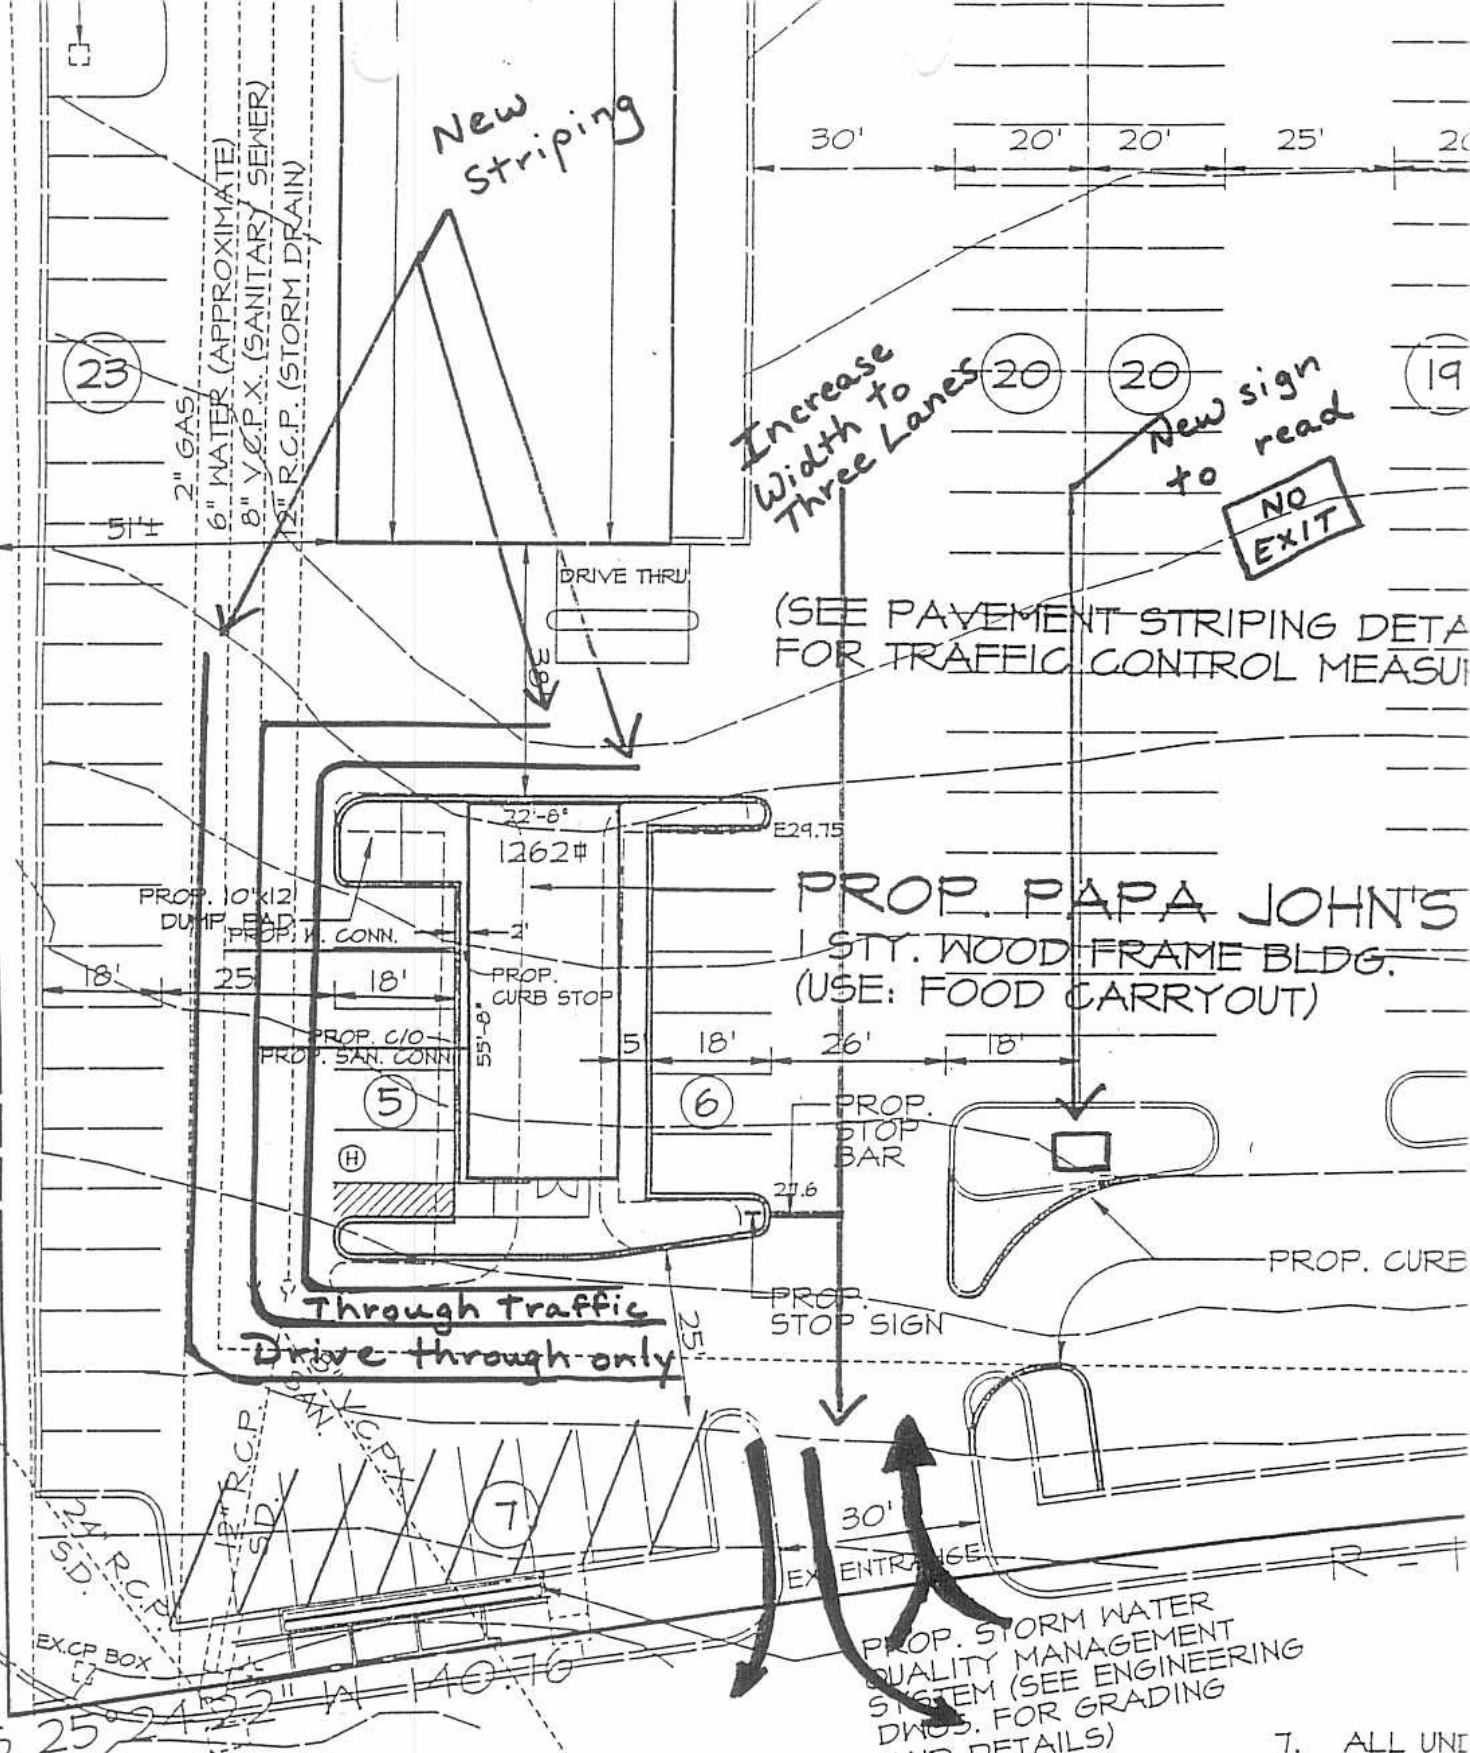 New
striping
30'
20'
20'
25'
2" GAS
6" WATER (APPROXIMATE)
8" V.C.P.X. (SANITARY SEWER)
12" R.C.P. (STORM DRAIN)
23
Increase
Width to
Three Lanes
20
20
19
New sign
to read
NO
EXIT
51'±
DRIVE THRU
(SEE PAVEMENT STRIPING DETA
FOR TRAFFIC CONTROL MEASU
22'-8"
1262#
E29.75
PROP. 10'x12'
DUMP. PAD
PROP. W. CONN.
2'
PROP. PAPA JOHN'S
1 STY. WOOD FRAME BLDG.
(USE: FOOD CARRYOUT)
18'
25'
18'
PROP.
CURB STOP
PROP. C/O
PROP. SAN. CONN.
55'-8"
5'
18'
26'
18'
5
6
H
PROP.
STOP
BAR
27.6
PROP. CURB
PROP.
STOP SIGN
Through Traffic
Drive through only
25'
12" R.C.P.
S.D.
24" R.C.P.
S.D.
7
30'
EX. ENTRANCE
R-1
EX.CP BOX
PROP. STORM WATER
QUALITY MANAGEMENT
SYSTEM (SEE ENGINEERING
DWGS. FOR GRADING
AND DETAILS)
25°24'22" W 140.70
7. ALL UNI